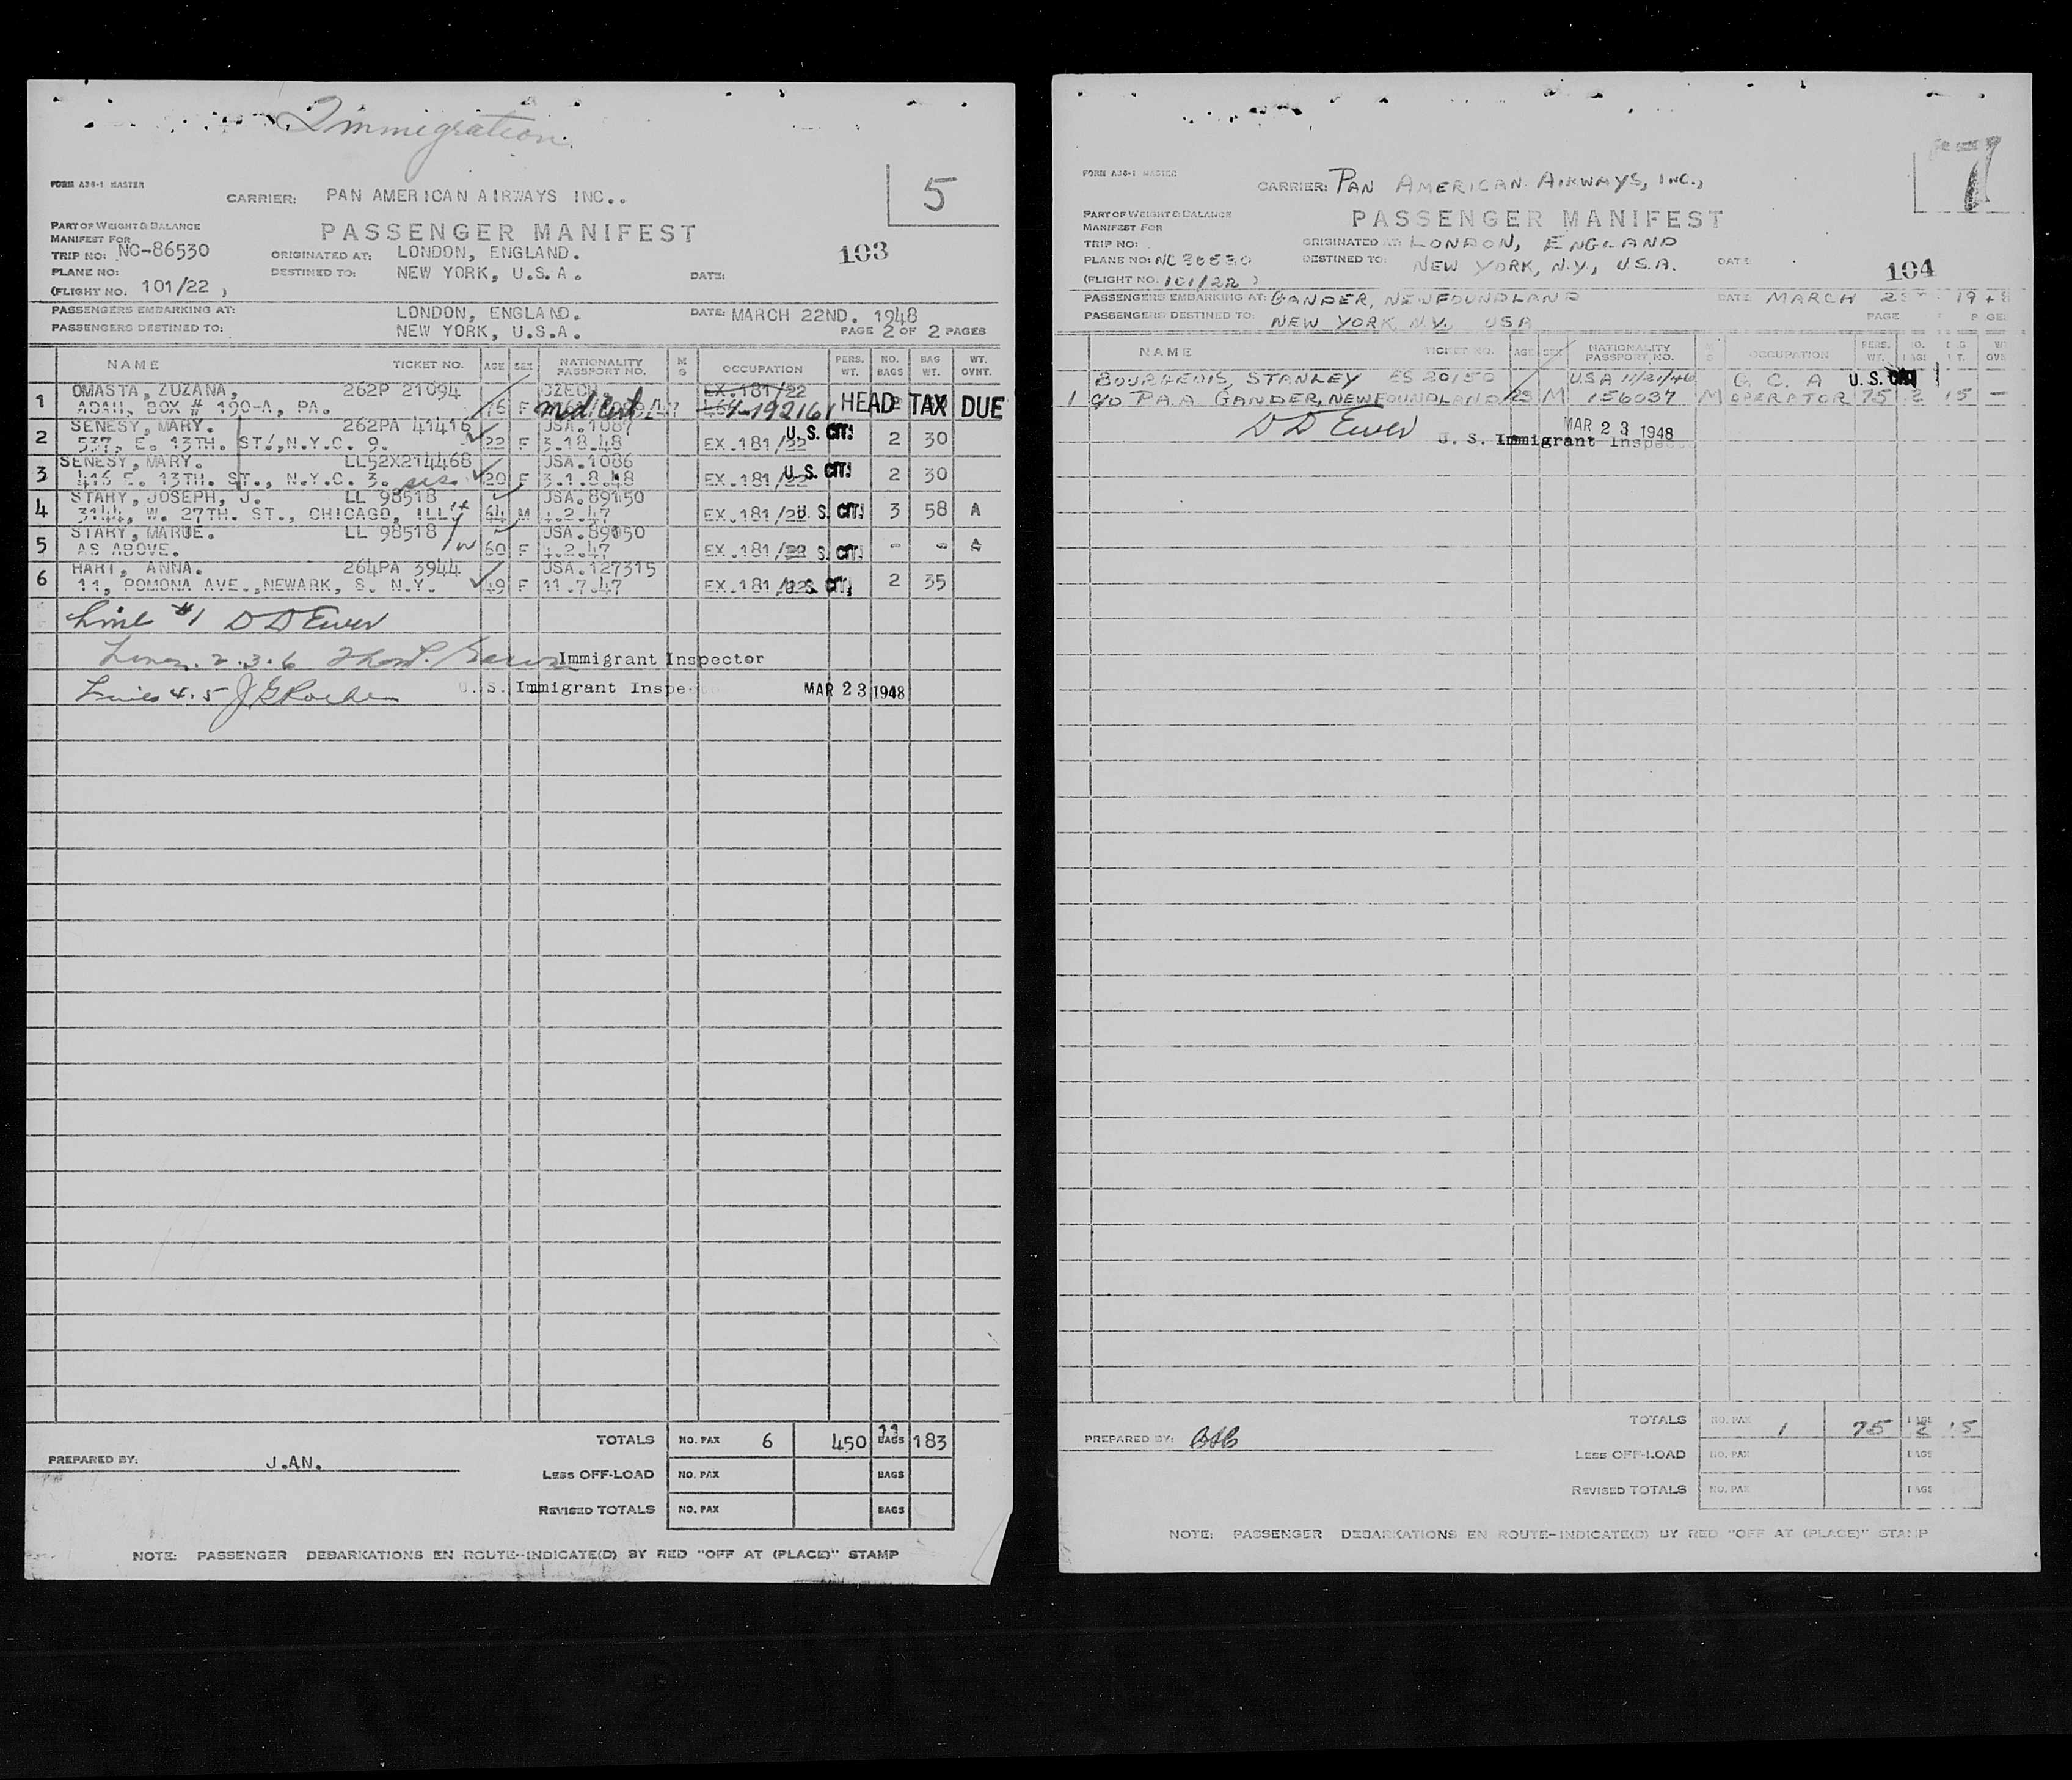 Immigration.
5
FORM A36-1 MASTER
CARRIER: PAN AMERICAN AIRWAYS INC..
PART OF WEIGHT & BALANCE
MANIFEST FOR
PASSENGER MANIFEST
103
TRIP NO: NC-86530
ORIGINATED AT: LONDON, ENGLAND.
PLANE NO:
DESTINED TO: NEW YORK, U.S.A.
DATE:
(FLIGHT NO. 101/22 )
PASSENGERS EMBARKING AT: LONDON, ENGLAND. DATE: MARCH 22ND. 1948
PASSENGERS DESTINED TO: NEW YORK, U.S.A. PAGE 2 OF 2 PAGES
NAME TICKET NO. AGE SEX NATIONALITY PASSPORT NO. M S OCCUPATION PERS. WT. NO. BAGS BAG WT. WT. OVNT.
1 OMASTA, ZUZANA, 262P 21094 CZECH. EX.181/22
ADAH, BOX # 190-A, PA. 16 F med cert HEAD TAX DUE
2 SENESY, MARY. 262PA 41416 USA.1087 U.S. CIT.
537, E. 13TH. ST., N.Y.C. 9. 22 F 3.18.48 EX.181/22 2 30
3 SENESY, MARY. LL52X214468 USA.1086 U.S. CIT.
416 E. 13TH. ST., N.Y.C. 3. 20 F 3.1.8.48 EX.181/22 2 30
4 STARY, JOSEPH, J. LL 98518 USA.89150
3144, W. 27TH. ST., CHICAGO, ILL. 64 M 4.2.47 EX.181/22 U.S. CIT. 3 58 A
5 STARY, MARIE. LL 98518 USA.89150
AS ABOVE. 60 F 4.2.47 EX.181/22 U.S. CIT. - - A
6 HART, ANNA. 264PA 3944 USA.127315
11, POMONA AVE.,NEWARK, S. N.Y. 49 F 11.7.47 EX.181/22 U.S. CIT. 2 35
Line #1 D D Ewer
Lines. 2.3.6 Immigrant Inspector
Lines 4.5 U.S. Immigrant Inspe MAR 23 1948
TOTALS NO. PAX 6 450 11 BAGS 183
PREPARED BY: J.AN.
LESS OFF-LOAD NO. PAX BAGS
REVISED TOTALS NO. PAX BAGS
NOTE: PASSENGER DEBARKATIONS EN ROUTE-INDICATE(D) BY RED "OFF AT (PLACE)" STAMP
1
FORM A36-1 MASTER
CARRIER: PAN AMERICAN AIRWAYS, INC.,
PART OF WEIGHT & BALANCE
MANIFEST FOR
PASSENGER MANIFEST
TRIP NO:
ORIGINATED AT: LONDON, ENGLAND
PLANE NO: NC 86530
DESTINED TO: NEW YORK, N.Y., U.S.A.
DATE
104
(FLIGHT NO. 101/22 )
PASSENGERS EMBARKING AT: GANDER, NEWFOUNDLAND DATE MARCH 1948
PASSENGERS DESTINED TO: NEW YORK N.Y., USA PAGE PAGES
NAME TICKET NO. AGE SEX NATIONALITY PASSPORT NO. OCCUPATION PERS. WT.
BOURGEOIS, STANLEY ES 20150 USA 11/21/46 G. C. A U.S. CIT.
1 C/O P.A.A GANDER, NEWFOUNDLAND M 156037 M OPERATOR 75 2 15 —
D D Ewer
MAR 23 1948
U. S. Immigrant Inspec
TOTALS NO. PAX 1 75 2 15
PREPARED BY:
LESS OFF-LOAD NO. PAX BAGS
REVISED TOTALS NO. PAX BAGS
NOTE: PASSENGER DEBARKATIONS EN ROUTE-INDICATE(D) BY RED "OFF AT (PLACE)" STAMP